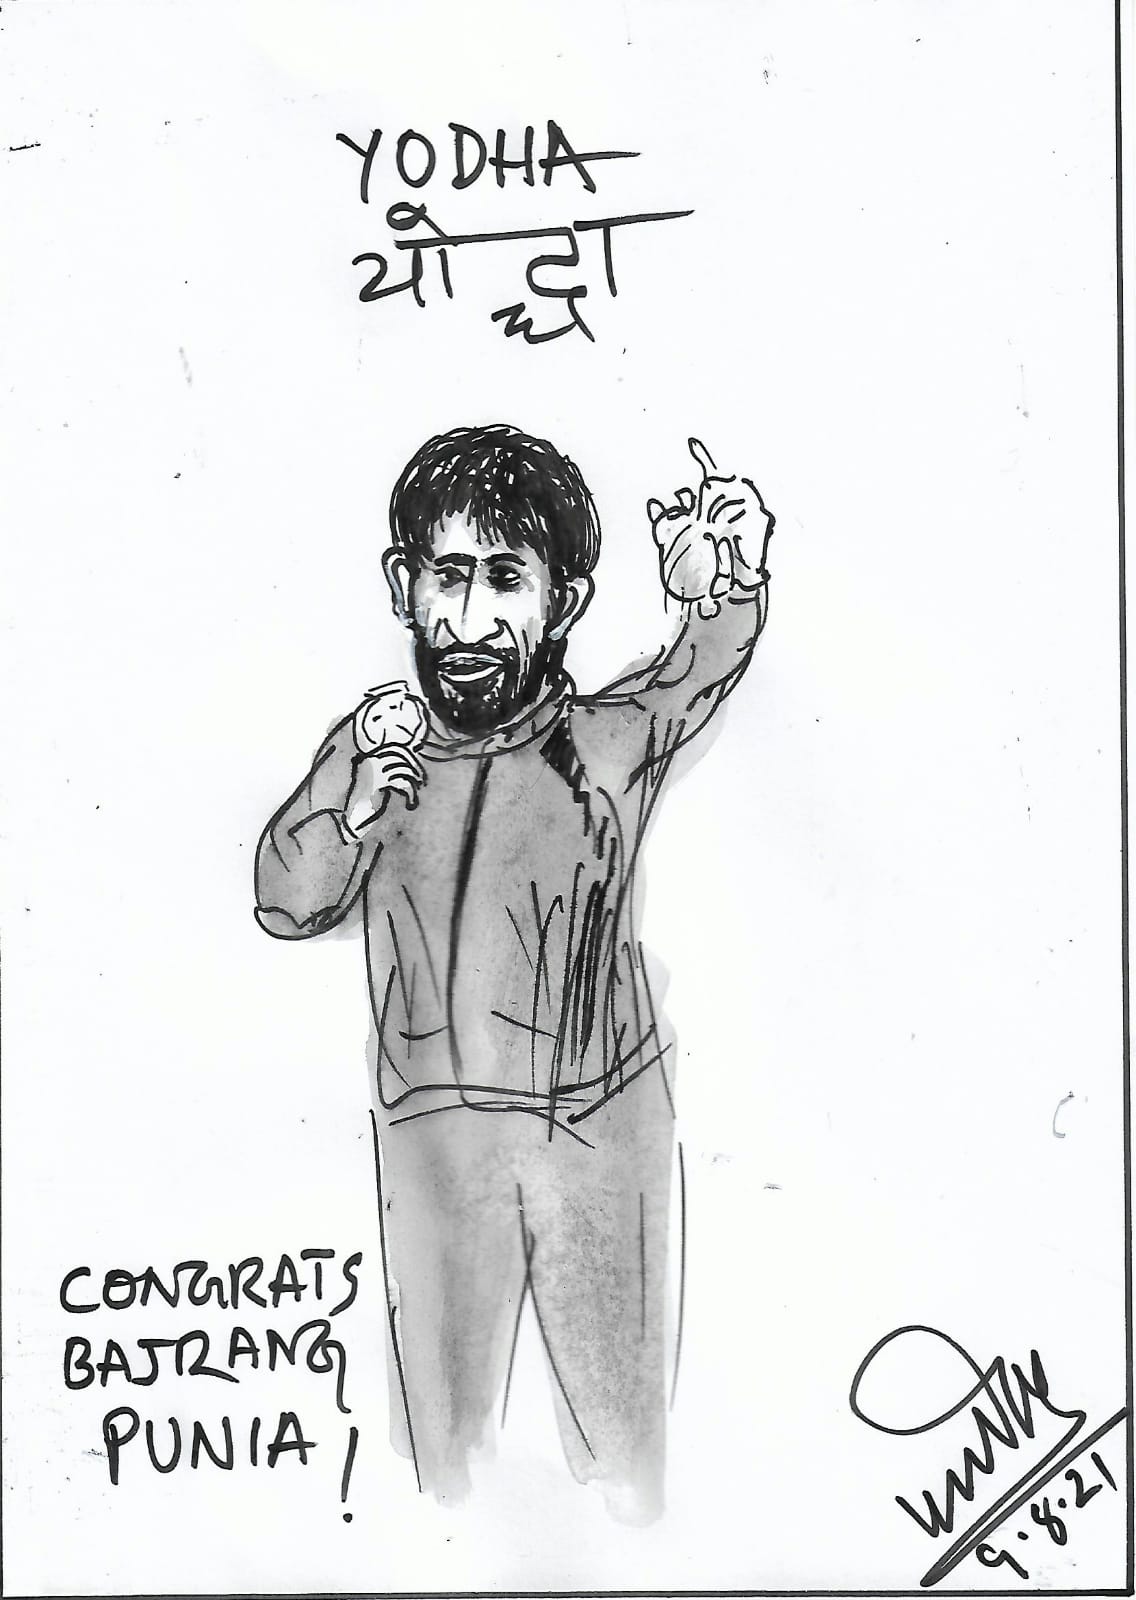 YODHA
योद्धा
CONGRATS
BAJRANG
PUNIA!
9.8.21